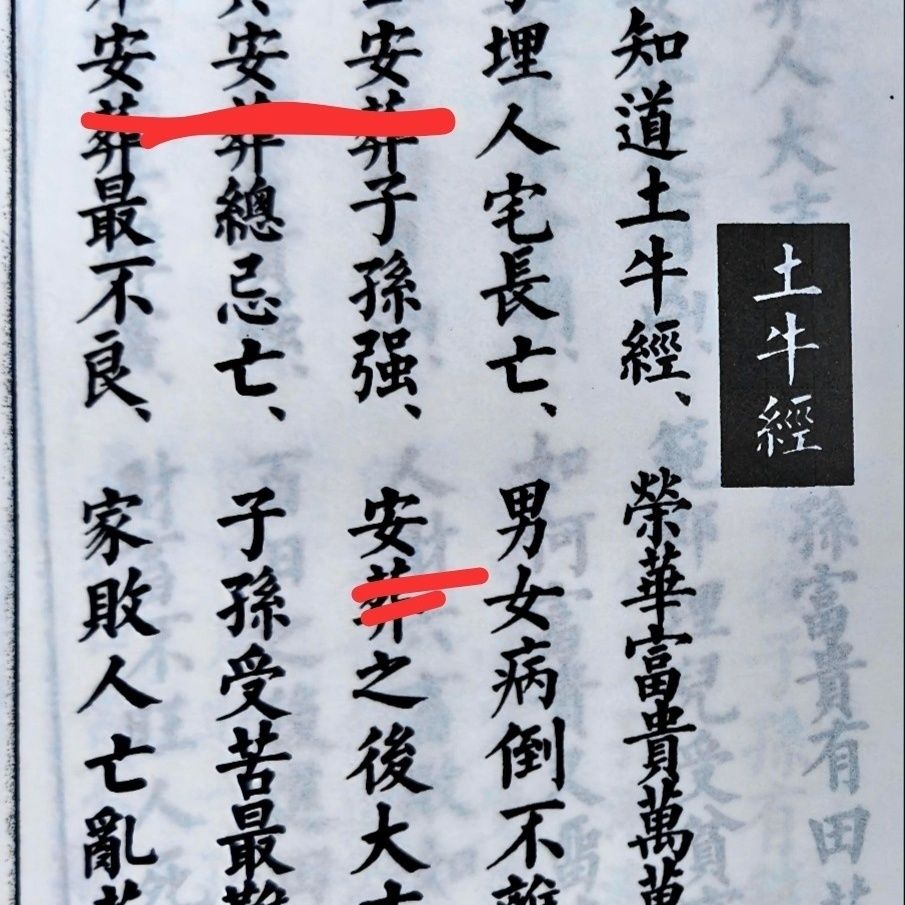 土牛經
知道土牛經、榮華富貴萬萬
埋人宅長亡、男女病倒不離
安葬子孫强、安葬之後大吉
安葬總忌亡、子孫受苦最難
安葬最不良、家敗人亡亂